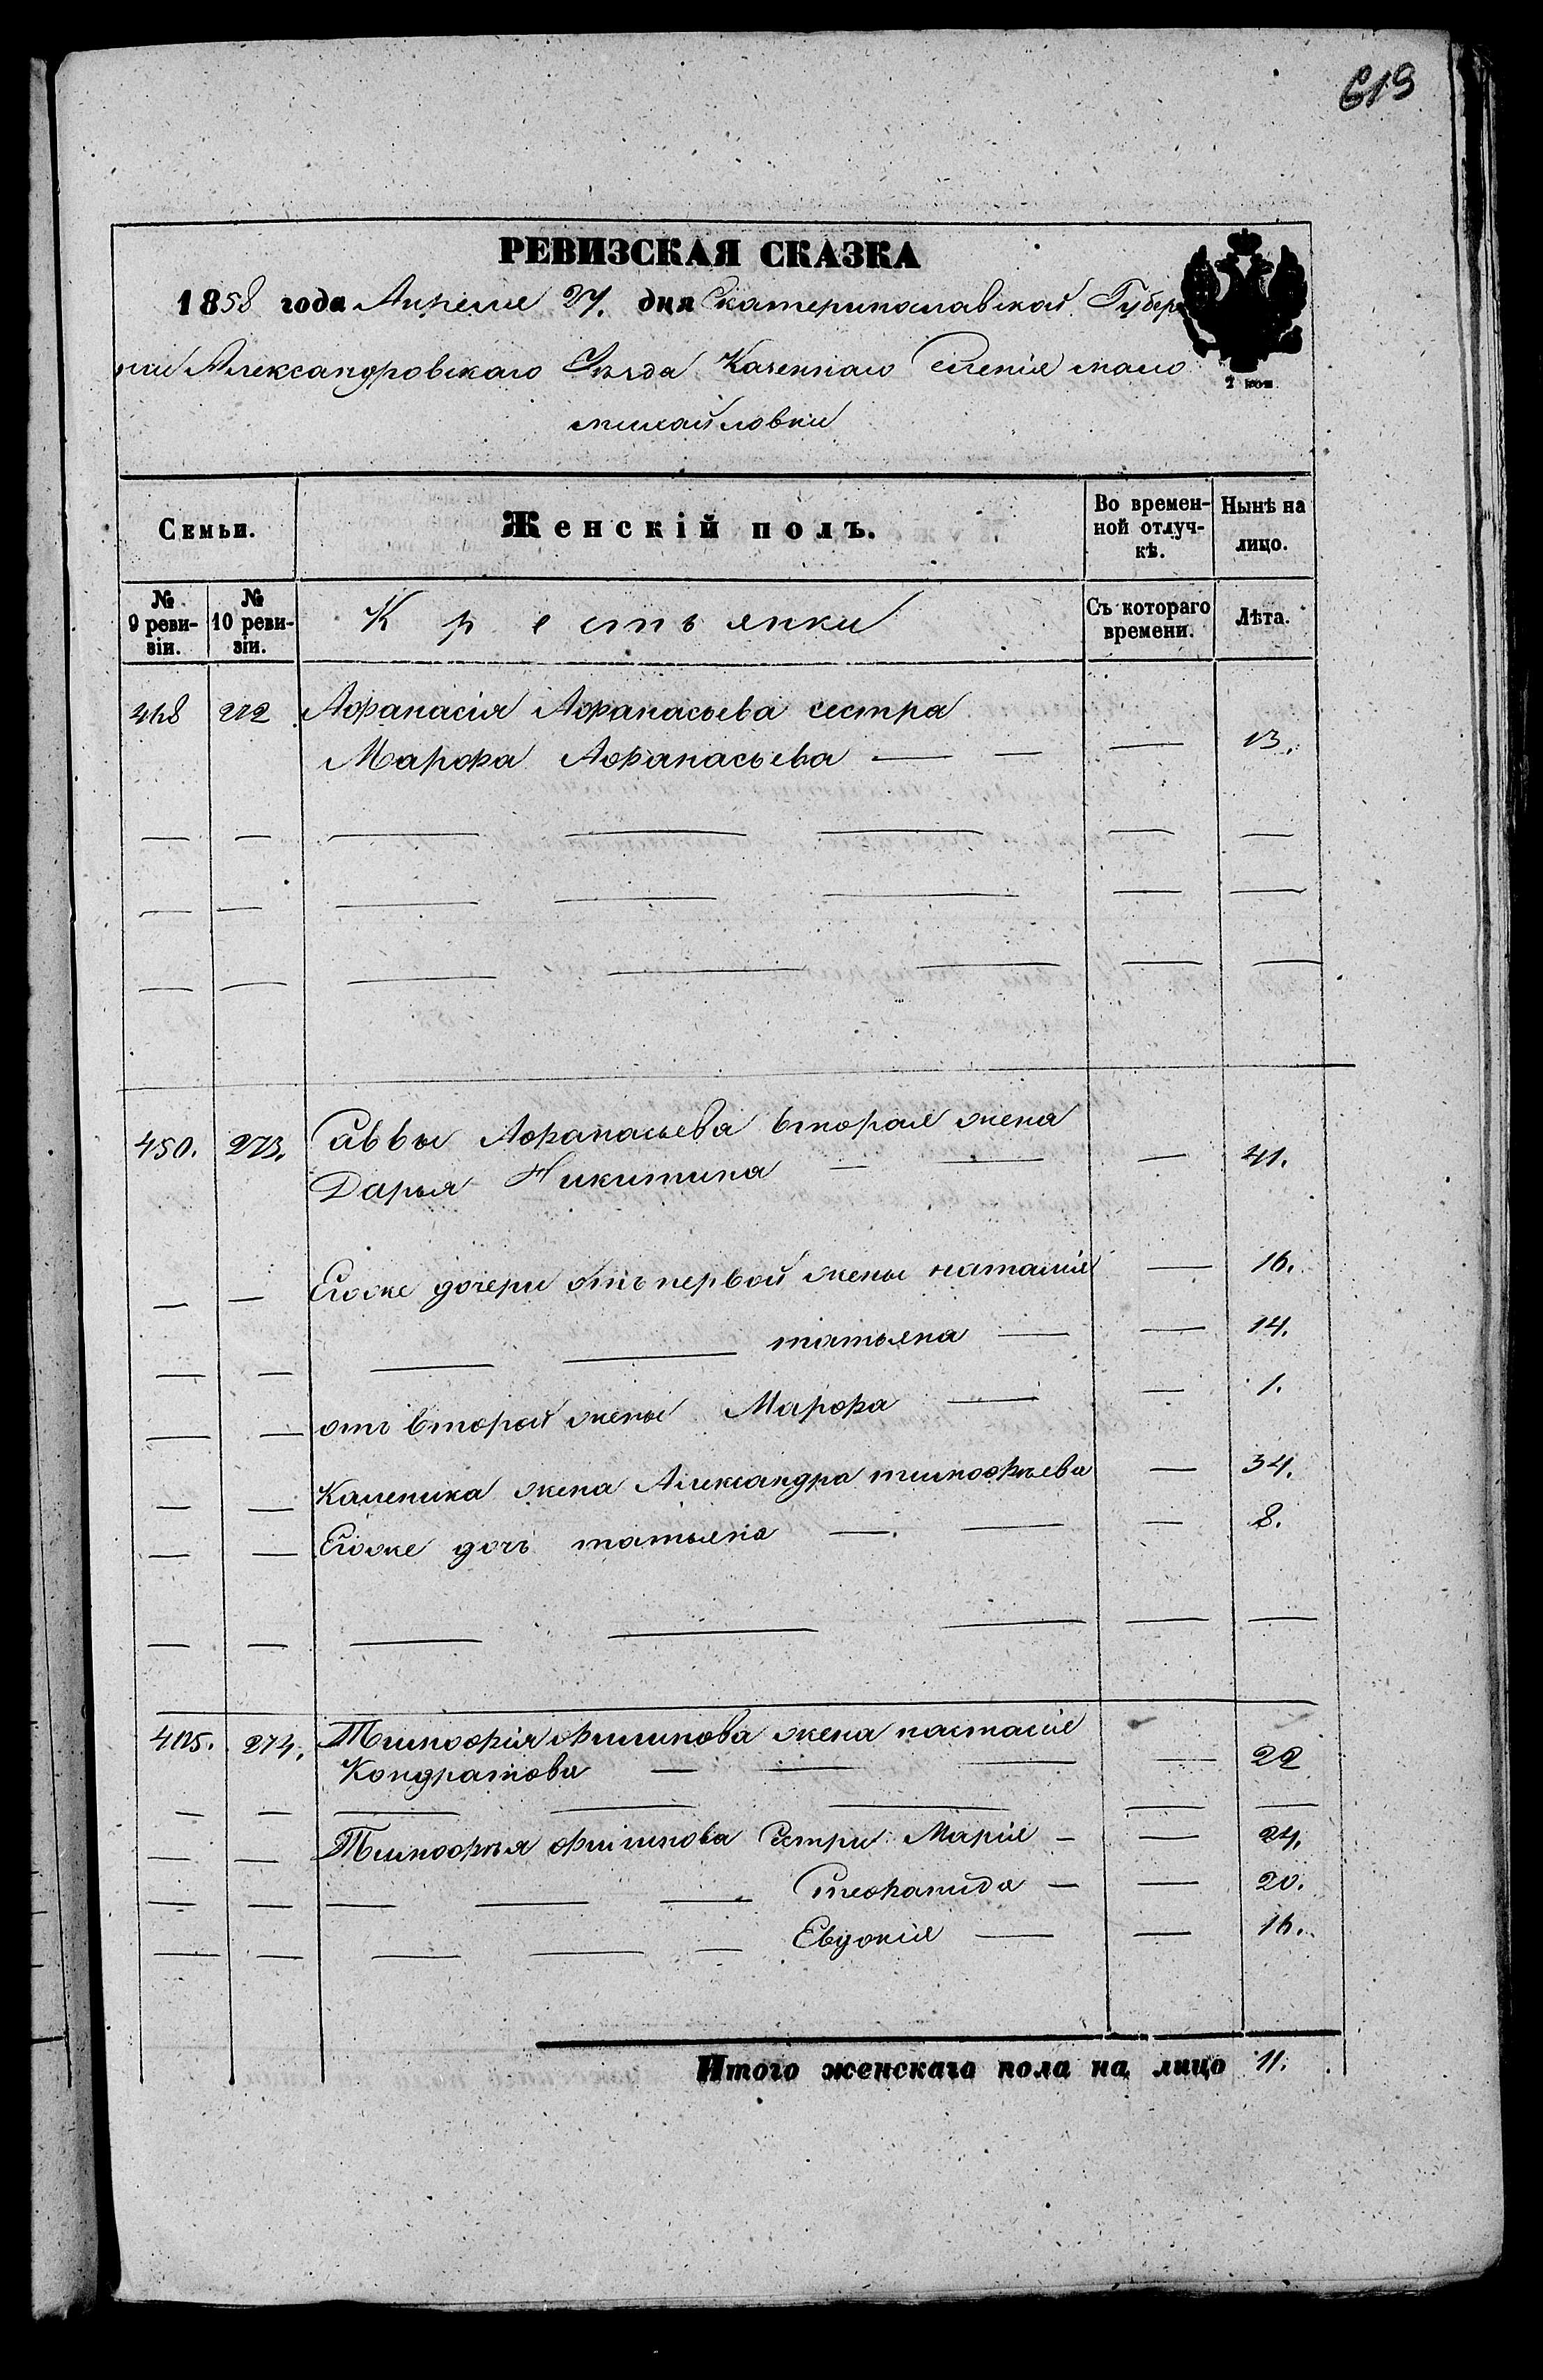 619
РЕВИЗСКАЯ СКАЗКА
1858 года Апреля 27. дня Екатеринославской Губер
нии Александровскаго Уѣзда Казеннаго Селенія мало
михайловки
2 коп.
Семьи.
Женскій полъ.
Во времен-
ной отлуч-
кѣ.
Нынѣ на
лицо.
№
9 реви-
зіи.
№
10 реви-
зіи.
Крестьянки
Съ котораго
времени.
Лѣта.
272 Афанасія Афанасьева сестра
Марфа Афанасьева — — — 13.
— — — — — — —
— — — — — — —
— — — — — — —
450. 273. Саввы Афанасьева вторая жена
Дарья Никитина — — — 41.
— — Егоже дочери отъ первой жены наталія — 16.
— — — — татьяна — — 14.
— — отъ второй жены Марфа — — 1.
— — Каленика жена Александра тимофѣева — 34.
— — Егоже дочь татьяна — — — 8.
— — — — — — —
274. Тимофія Филипова жена настасія
Кондратова — — — — 22
— — — — — — —
— — Тимофѣя филипова Сестри: Марія — — 24.
— — — — — Степанида — — 20.
— — — — — Евдокія — — 16.
Итого женскаго пола на лицо 11.